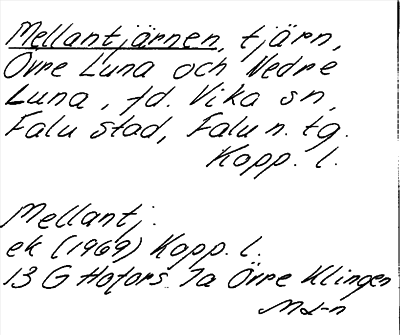 Mellantjärnen, tjärn,
Övre Luna och Nedre
Luna, fd. Vika sn,
Falu stad, Falu n. tg.
Kopp. l.
Mellantj.
ek (1969) Kopp. l.
13 G Hofors 7a Övre Klingen